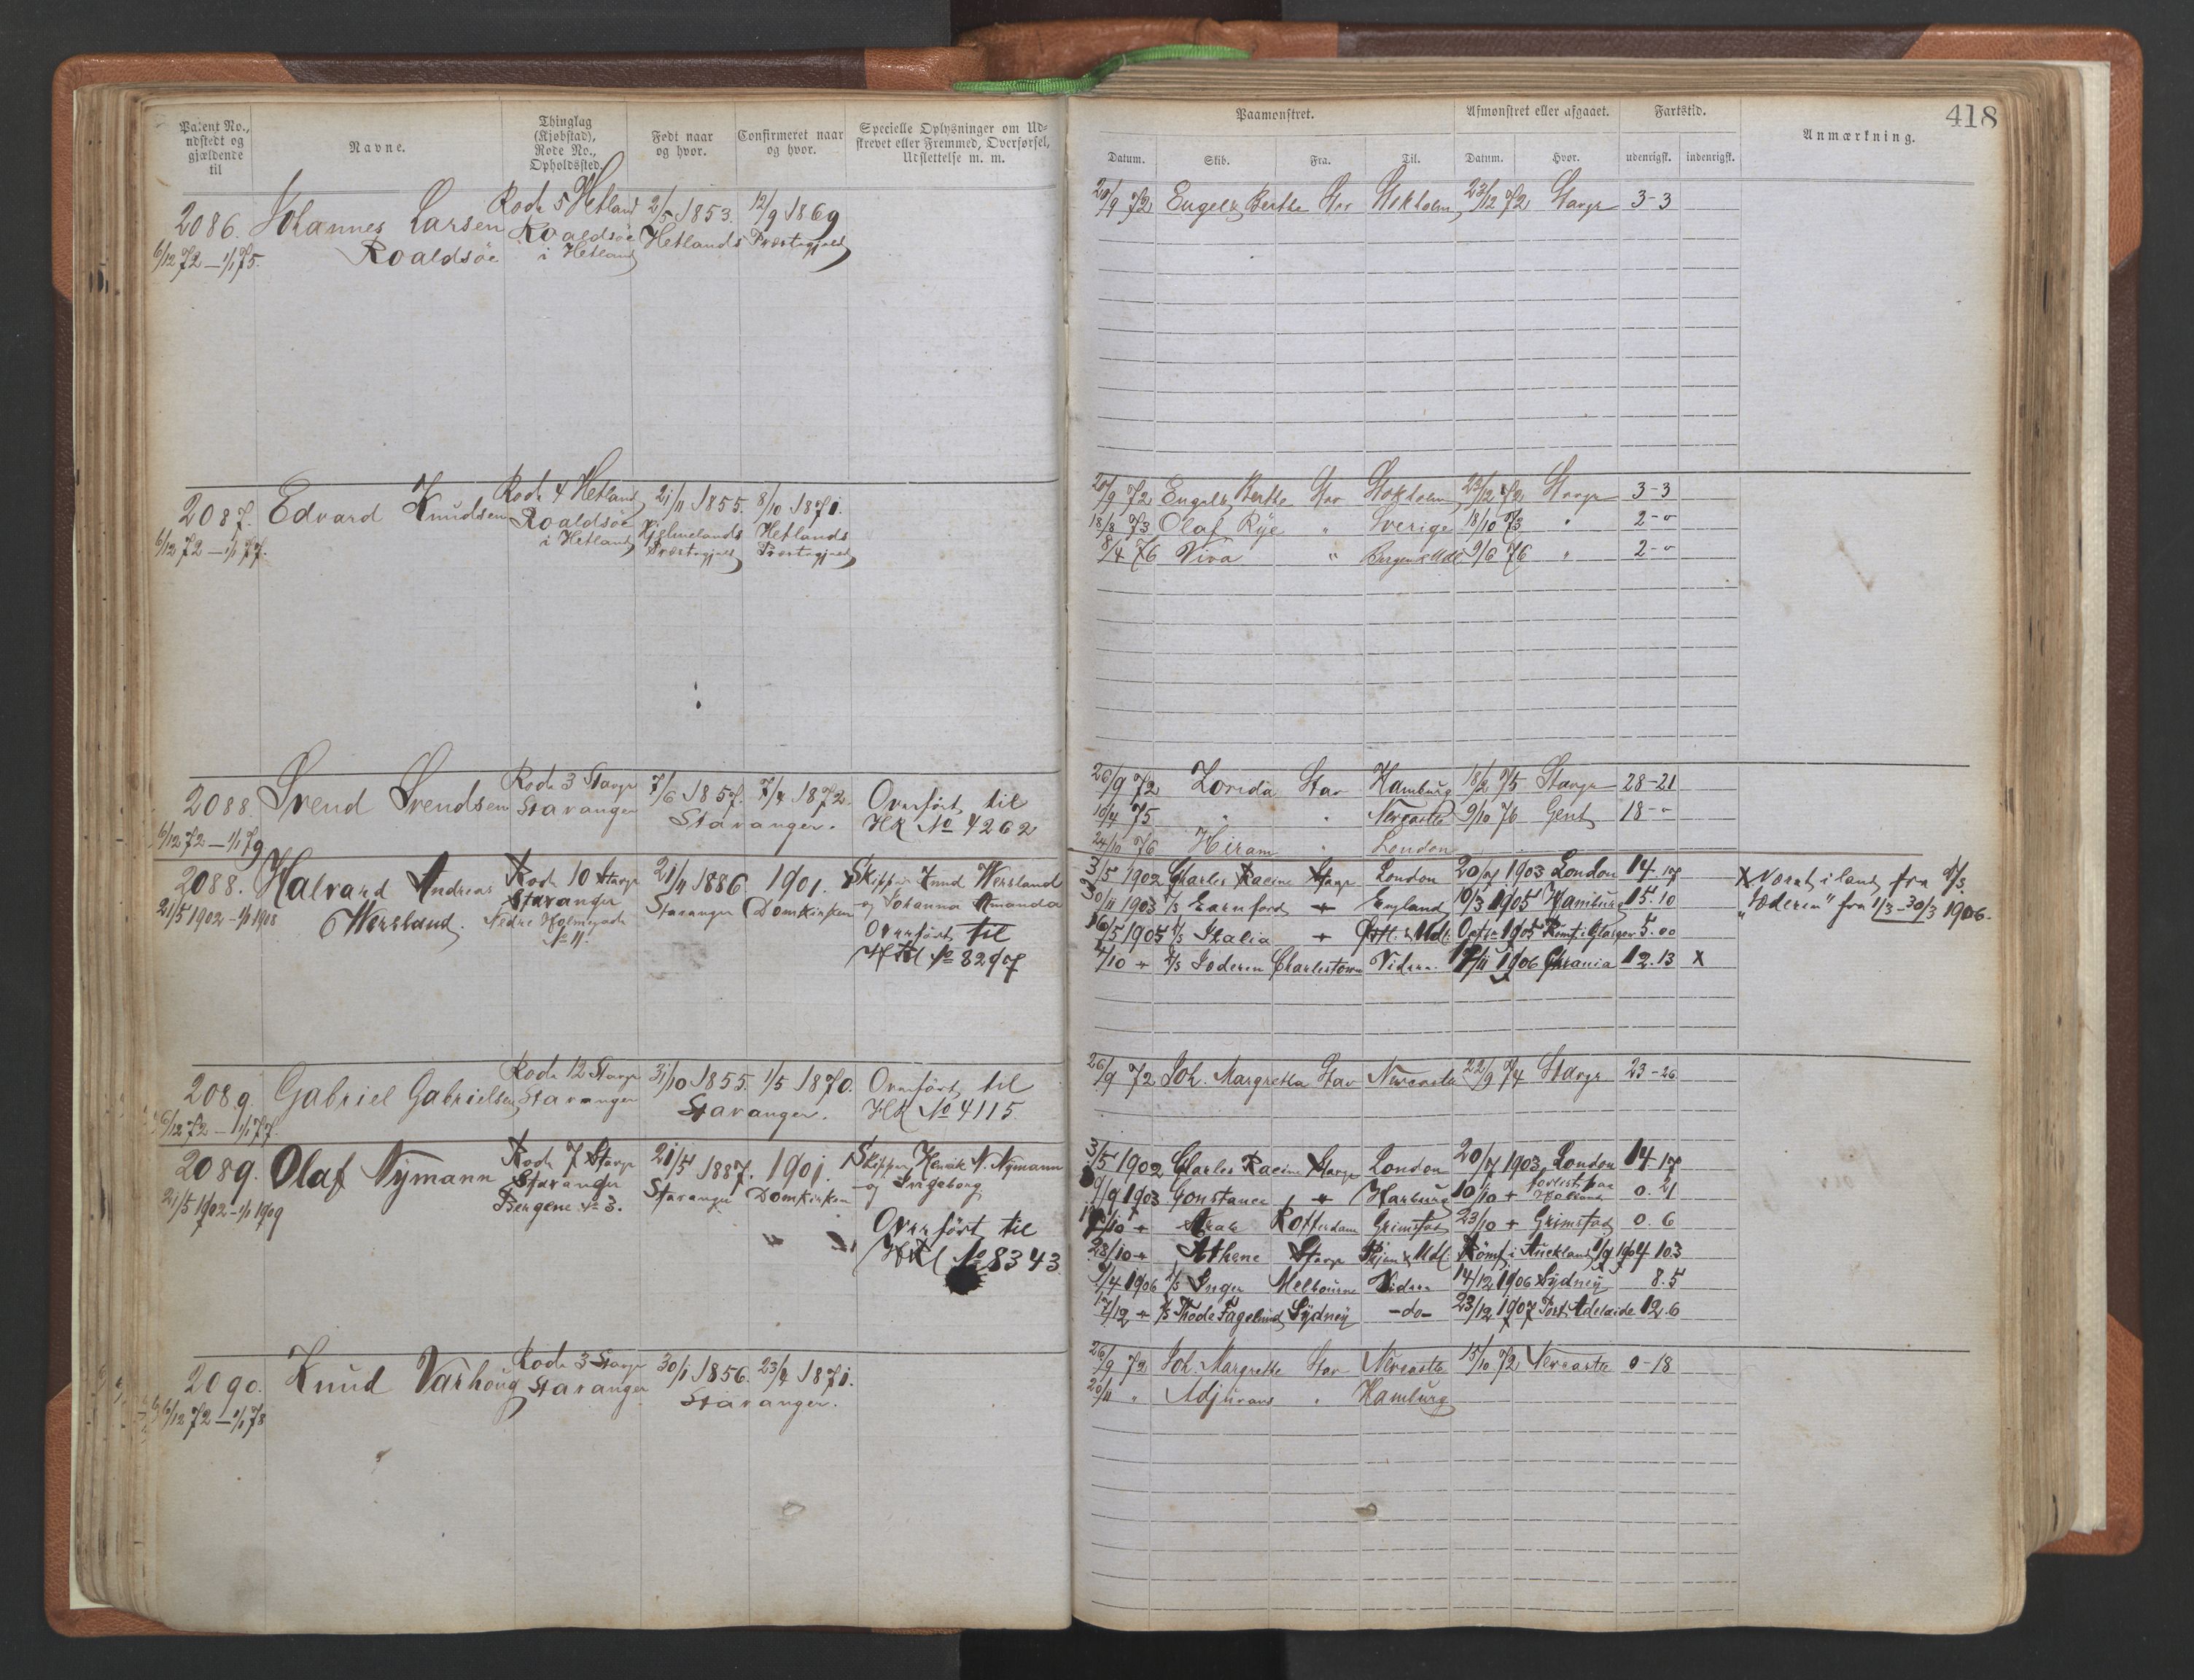 418
Patent No., udstedt og gjældende til
Navne.
Thinglag (Kjøbstad), Rode No., Opholdssted.
Født naar og hvor.
Confirmeret naar og hvor.
Specielle Oplysninger om Udskrevet eller Fremmed, Overførsel, Udslettelse m. m.
Paamønstret.
Afmønstret eller afgaaet.
Fartstid.
Anmærkning.
Datum. Skib. Fra. Til. Datum. Hvor. udenrigsk. indenrigsk.
2086. Johannes Larsen Rode 5 Hetland 2/5 1853. 12/9 1869
6/12 72 – 1/1 75. Roaldsöe Roaldsöe i Hetland Hetlands Præstegjeld
72 Engelb. Berthe Stav Stokholm 23/12 72 Stavgr 3-3
2087. Edvard Knudsen Rode 4 Hetland 21/11 1855. 8/10 1871.
6/12 72 – 1/1 77. Roaldsöe i Hetland Hjelmelands Præstegjeld Hetlands Præstegjeld
72 Engelb. Berthe Stav Stokholm 23/12 72 Stavgr 3-3
18/8 73 Olaf Rÿe " Sverige 18/10 73 " 2-"
8/4 76 Viva " 9/6 76 " 2-"
2088. Svend Svendsen Rode 3 Stavgr 7/6 1857. 7/4 1872.
6/12 72 – 1/1 79 Stavanger Stavanger.
Overfört til
HR No 4262
26/9 72 Zorida Stav Hamburg 18/2 75 Stavgr 28-21
10/4 75 " " Newcastle 9/10 76 Gent 18-"
24/10 76 Hiram " London
2088. Halvard Andreas Rode 10 Stavgr 21/11 1886. 1901.
21/5 1902 – 1/1 1908 Wersland. Stavanger Stavanger Domkirken
Nedre Holmegade
No 11.
Skipper Knud Wersland
og Johanna Amanda
Overfört til
Htl No 8297
3/5 1902 Charles Racine Stavgr London 20/7 1903 London 14.17
30/11 1903 S/S Earnford + England 10/3 1905 Hamburg 15.10
16/5 1905 S/S Italia + 1905 Römt i Glasgow 5.00
4/10 + S/S Joderen Charlestown Videre 1906 Chrania 12.13 X
X Været i land fra
"Jæderen" fra 1/3 – 30/3 1906.
2089. Gabriel Gabrielsen Rode 12 Stavgr 31/10 1855. 1/5 1870.
6/12 72 – 1/1 77. Stavanger Stavanger.
Overfört til
HR No 4115.
26/9 72 Joh. Margretha Stav Newcastle 22/9 74 Stavgr 23-26
2089. Olaf Nÿmann Rode 7 Stavgr 21/5 1887. 1901.
21/5 1902 – 1/1 1909 Stavanger Stavanger Domkirken
Bergene No 3.
Skipper Henrik N. Nÿmann
og Ingeborg
Overfört til
Htl No 8343
3/5 1902 Charles Racine Stavgr London 20/7 1903 London 14.17
9/9 1903 Constance + Harburg 10/10 + forlist paa Holland 0.21
+ Arab Rotterdam Grimstad 23/10 + Grimstad 0.6
28/10 + Athene Stavgr Skien & Udl. Römt i Auckland 1/9 1904 10.3
1906 S/S Inger Melbourne Videre 14/12 1906 Sÿdneÿ 8.5
17/12 + S/S Thode Fagelund Sÿdneÿ -do- 23/12 1907 Port Adelaide 12.6
2090. Knud Varhoug Rode 3 Stavgr 30/1 1856. 23/4 1871.
6/12 72 – 1/1 78 Stavanger Stavanger.
26/9 72 Joh. Margretha Stav Newcastle 15/10 72 Newcastle 0-18
20/11 " Adjurant " Hamburg